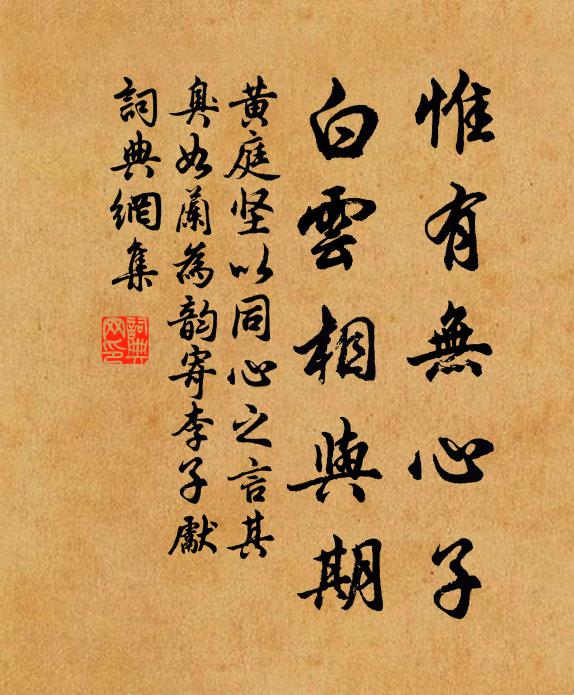 惟有無心子
白雲相與期
黄庭坚以同心之言其
臭如蘭為韵寄李子獻
詞典網集
詞典
网印